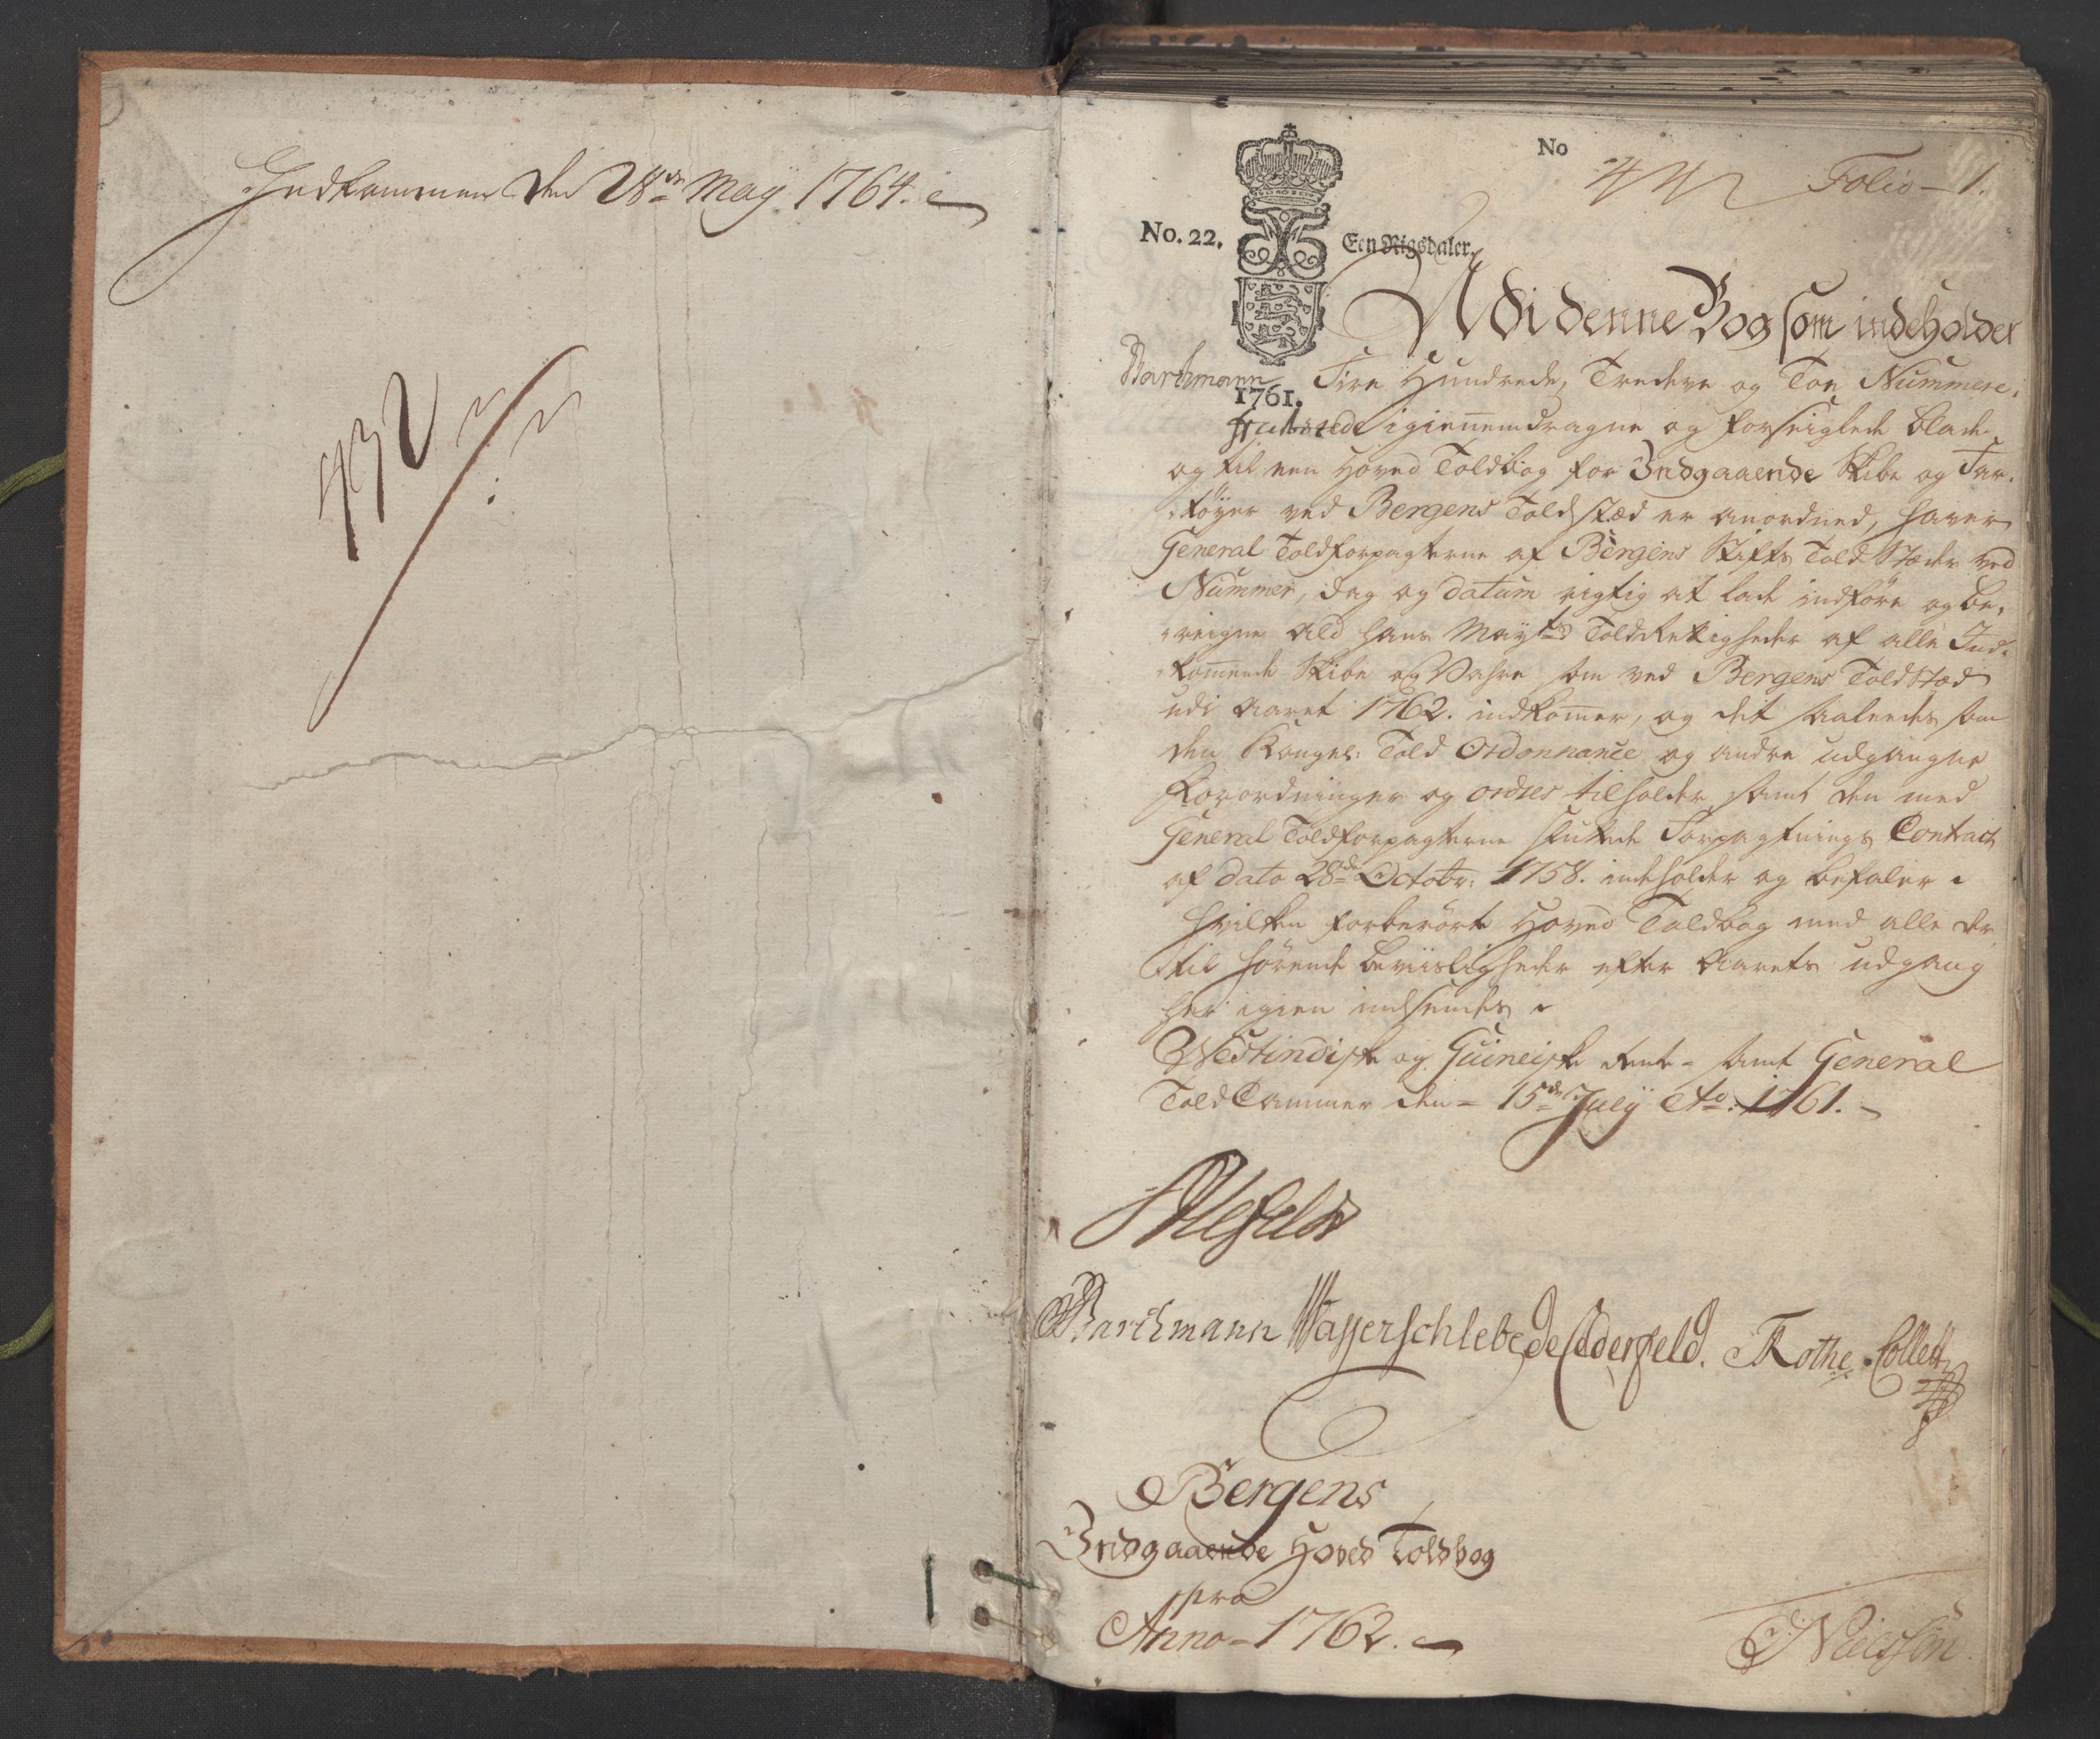 Indkommen den 28de May 1764.
432
No
Folio - 1.
No. 22.
Een Rigsdaler.
Udi denne Bog som indeholder
Barthmann Fire Hundrede, Tredeve og Toe Nummere-
1761.
igiennemdragne og forseiglede blade
og til een Hoved Toldbog for Indgaaende Skibe og Far-
tøyer ved Bergens Toldstæd er anordned, haver
General Toldforpagterne af Bergens Stifts Told Stæder ved
Nummer, dag og datum rigtig at lade indføre og be-
reigne all hans Mayts Told Rettigheder af alle Ind-
kommende Skibe og Vahre som ved Bergens Toldstæd
udi Aaret 1762. indkommer, og det saaledes som
den Kongel: Told Ordonnance og andre udgangne
Forordninger og ordres tilholder samt den med
General Toldforpagterne sluttede Forpagtnings Contract
af dato 28de Octobr: 1758. indeholder og befaler
hvilken forberørte Hoved Toldbog med alle der
til hørende beviisligheder efter Aarets udgang
her igien indsendes
Westindiske og Guineiske Rente- samt General
Told Cammer den 15de July Ao: 1761.
Barthmann Wasserschlebe de Cederfeld. Rothe Collett
Bergens
Indgaaende Hoved Toldbog
pro
Anno 1762.
Nielssen